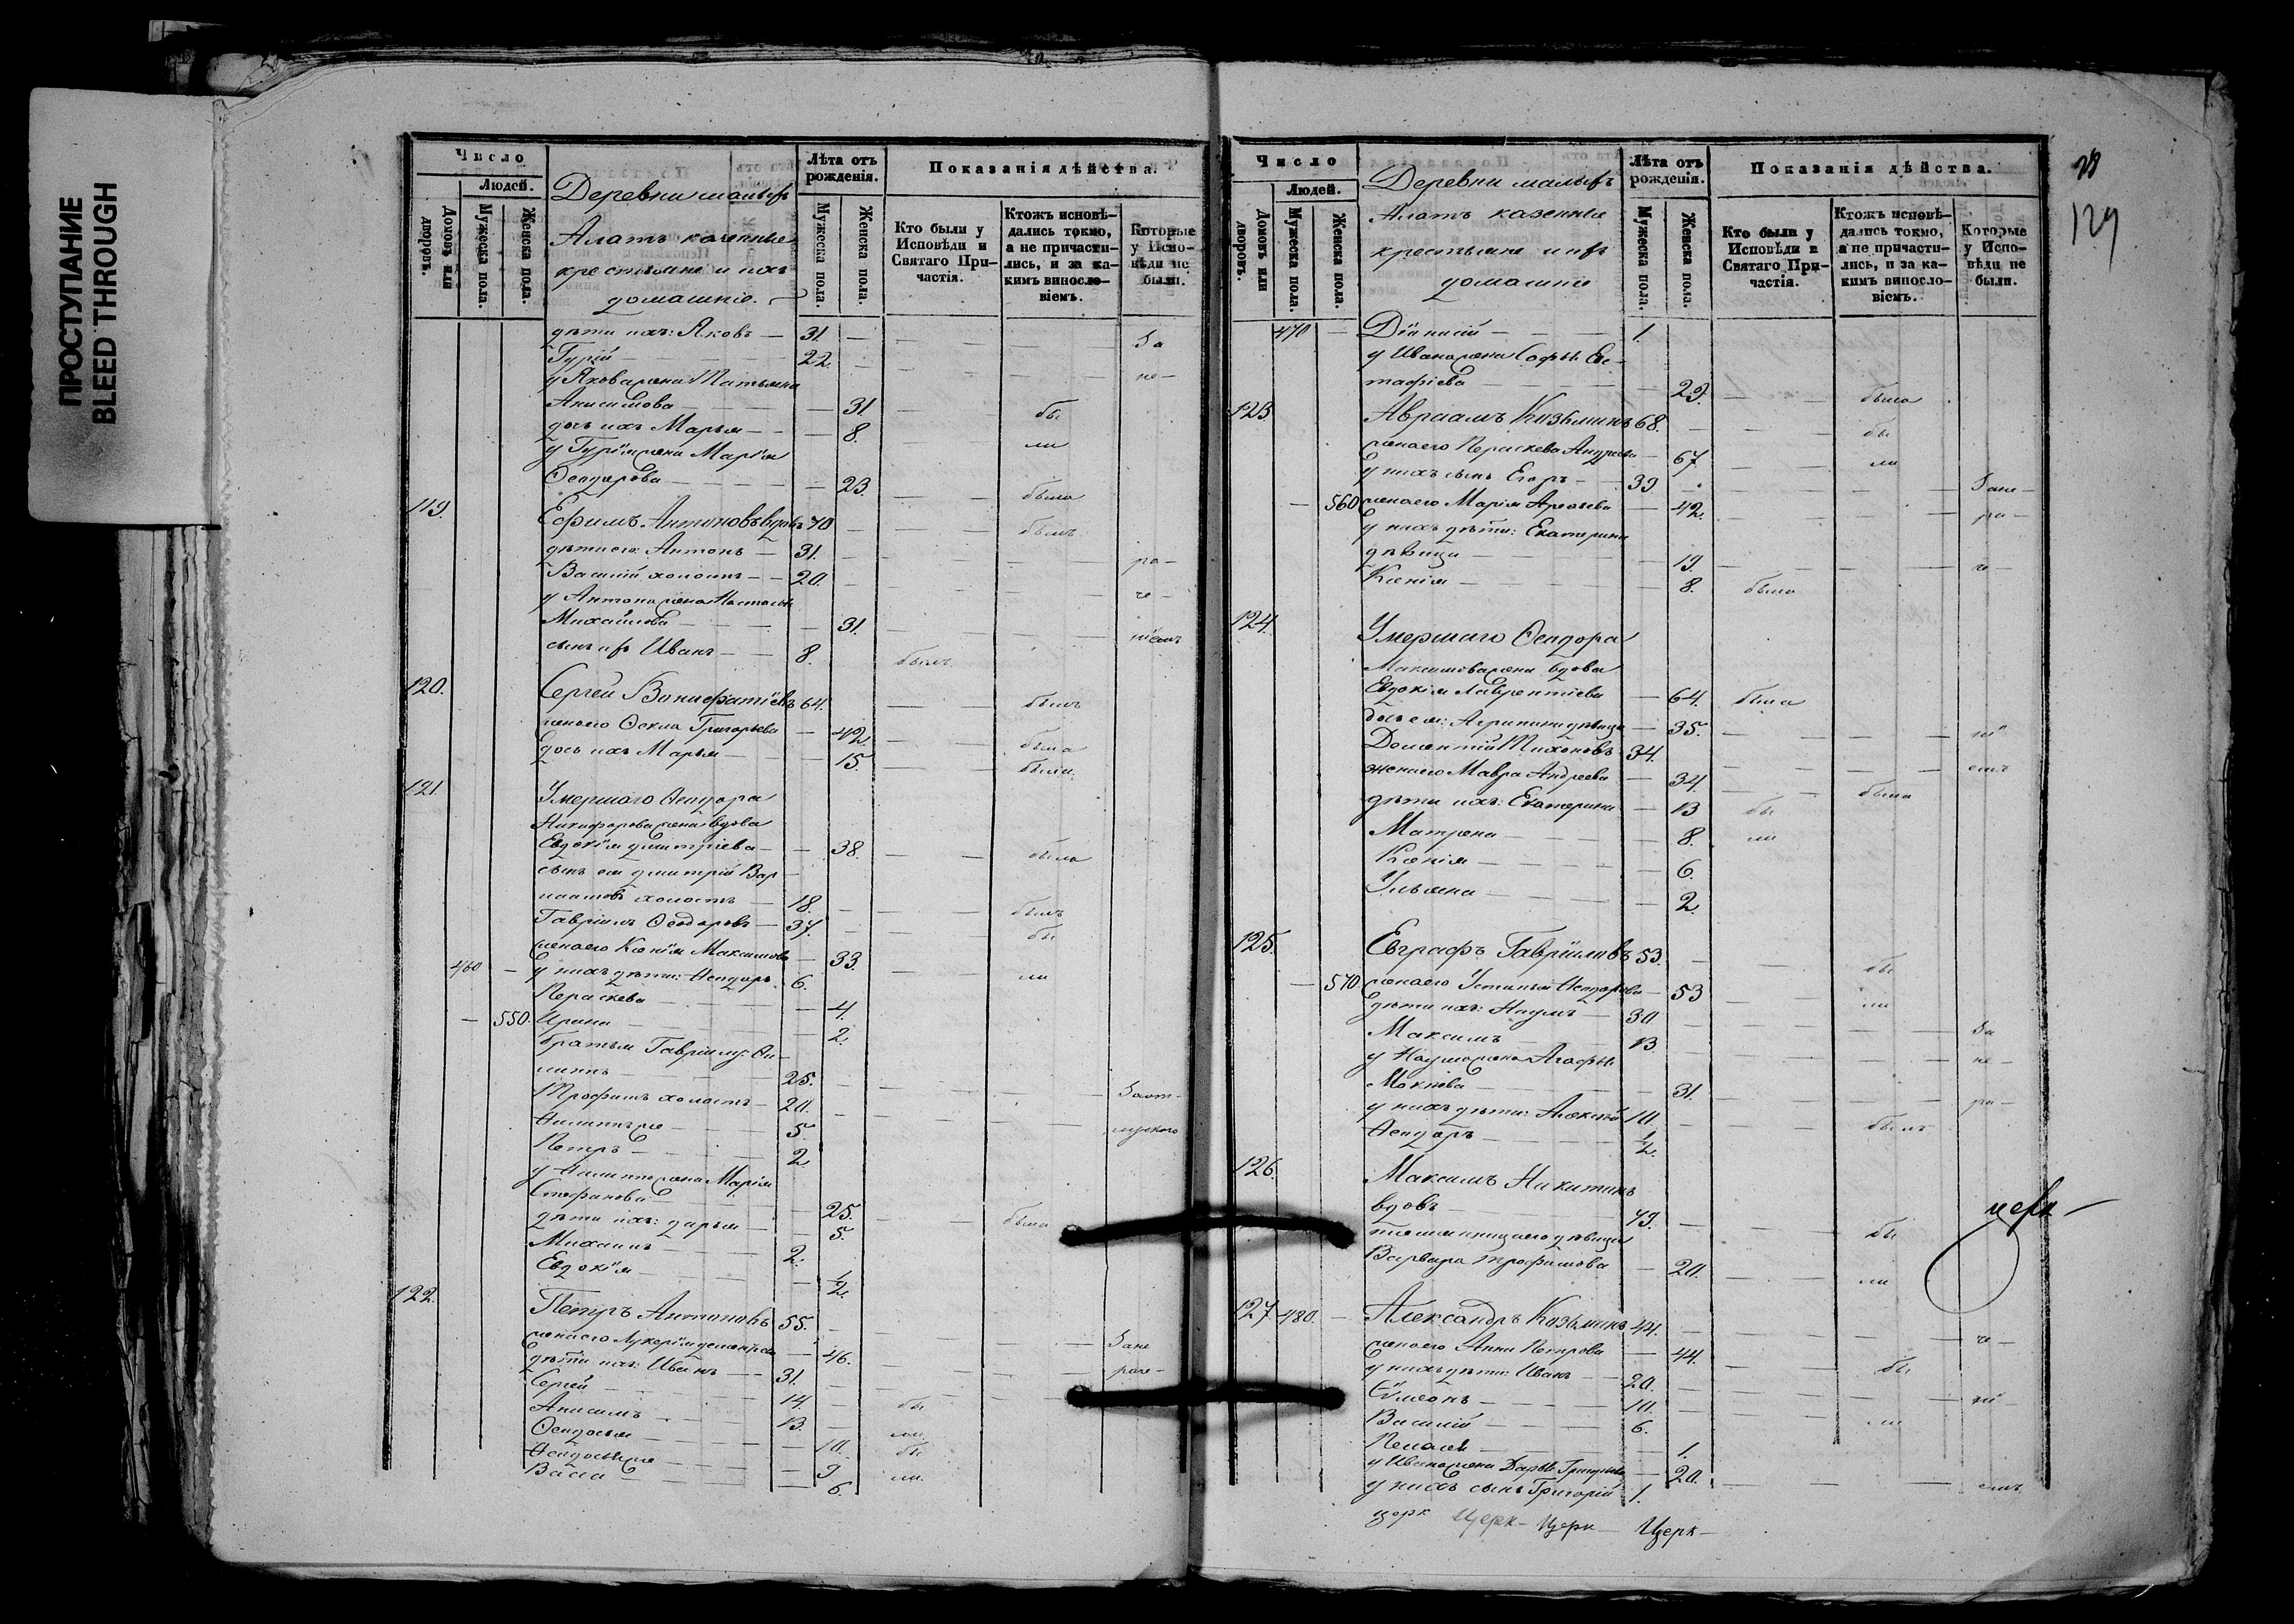 ПРОСТУПАНИЕ
BLEED THROUGH
Число
Людей.
Домовъ или дворовъ.
Мужеска пола.
Женска пола.
Деревни малыхъ
Алатъ казенные
крестьяне и ихъ
домашніе.
Лѣта отъ рожденія.
Мужеска пола.
Женска пола.
Показанія дѣйства.
Кто были у Исповѣди и Святаго Причастія.
Ктожъ исповѣдались токмо, а не причастились, и за какимъ винословіемъ.
Которые у Исповѣди не были.
дѣти ихъ: Яковъ — 31. За
Гурій — 22. не—
у Якова жена Татьяна
Анисимова — 31. бы
дочь ихъ Марья — 8. ли
у Гурія жена Марія
Ѳеодорова — 23. была
119. Ефимъ Антоновъ вдовъ 70 былъ
дѣти его: Антонъ — 31. ра—
Василій холостъ — 20. че—
у Антона жена Настасья
Михайлова — 31.
сынъ ихъ Иванъ — 8. былъ
120. Сергей Вонифатіевъ 64. былъ
жена его Ѳекла Григорьева — 42. была
дочь ихъ Марья — 15. была
121. Умершаго Ѳеодора
Никифорова жена вдова
Евдокія Дмитріева — 38. была
сынъ ея Дмитрій Вар
холостъ — 18. былъ
Гавріилъ Ѳеодоровъ — 37. бы
жена его Ксенія Максимова — 33.
460 — у нихъ дѣти: Ѳеодоръ 6. ли
Параскева — 4.
— 550. Ирина — 2.
братья Гавріилу: Фи—
липпъ — 25.
Трофимъ холостъ — 20. За от—
Филиппъ же — 5. лучкою
Петръ — 2
у Филиппа жена Марія
Стефанова — 25.
дѣти ихъ: Дарья — 5. была
Михаилъ — 2.
Евдокія — 1/2.
122. Петръ Антоновъ 55.
жена его Лукерія Дементьева — 46. За не
дѣти ихъ: Иванъ — 31. раче—
Сергей — 14. бы
Анисимъ — 13.
Ѳеодосья — 10. ли
Ѳеодосья же — 9. бы
Васса — 6. ли.
Число
Людей.
Домовъ или дворовъ.
Мужеска пола.
Женска пола.
Деревни малыхъ
Алатъ казенные
крестьяне и ихъ
домашніе
Лѣта отъ рожденія.
Мужеска пола.
Женска пола.
Показанія дѣйства.
Кто были у Исповѣди и Святаго Причастія.
Ктожъ исповѣдались токмо, а не причастились, и за какимъ винословіемъ.
Которые у Исповѣди не были.
129
470 — Діонисій — 1.
у Ивана жена Софья Ев—
стафіева — 29. была
123 Авраамъ Козьминъ 68. бы
жена его Параскева Андреева — 67 ли
у нихъ сынъ Егоръ — 39. За не—
— 560 жена его Марія — 42. ра—
у нихъ дѣти: Екатерина
дѣвица — 19. че—
Ксенія — 8. была
124. Умершаго Ѳеодора
Максимова жена вдова
Евдокія Лаврентіева — 64. была
дочь ея: Агрипина дѣвица — 35. ні
Доментій Тихоновъ 34. емъ
жена его Мавра Андреева — 34. была
дѣти ихъ: Екатерина — 13 бы
Матрена — 8. ли
Ксенія — 6.
Ульяна — 2.
125. Евграфъ Гавріиловъ 53. бы
— 570. жена его Устинья Ѳеодорова — 53 ли
дѣти ихъ: Наумъ — 30 За
Максимъ — 13. не—
у Наума жена Агафья
Мокіева — 31. ра—
у нихъ дѣти: Алексѣй 10. былъ
Ѳеодоръ — 1/2.
126. Максимъ Никитинъ
вдовъ — 49. бы
дѣвица
Варвара Трофимова — 20. ли
церк—
127 480. — Александръ Козьминъ 44. че—
жена его Анна Петрова — 44. бы
у нихъ дѣти: Иванъ — 20. ні—
Сѵмеонъ — 10.
Василій — 6. ли
Пелагея — 1.
у Ивана жена Дарья Григорьева — 20. емъ
у нихъ сынъ Григорій 1.
церк церк— церк— церк—